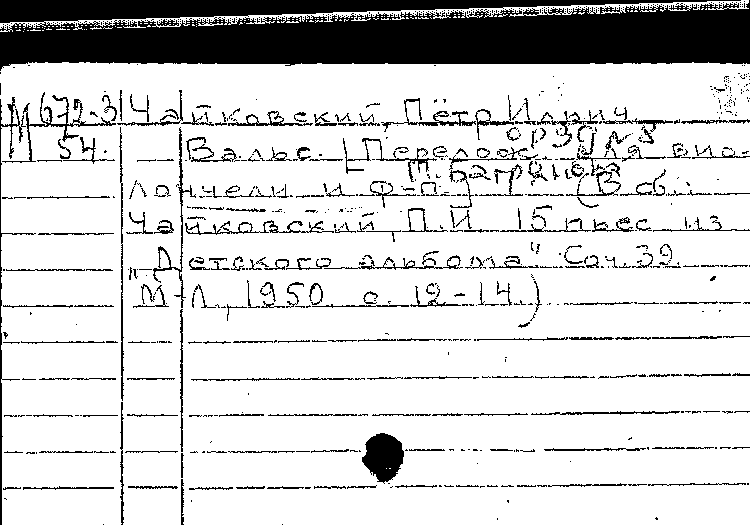 М 672-3 Чайковский, Пётр Ильич
54.
ор 39 №8
Вальс. [Перелож. для вио-
Т. Багрянова
лончели и ф-п.] (В сб.:
Чайковский, П.И. 15 пьес из
„Детского альбома". Соч. 39.
М-Л., 1950. с. 12-14.)